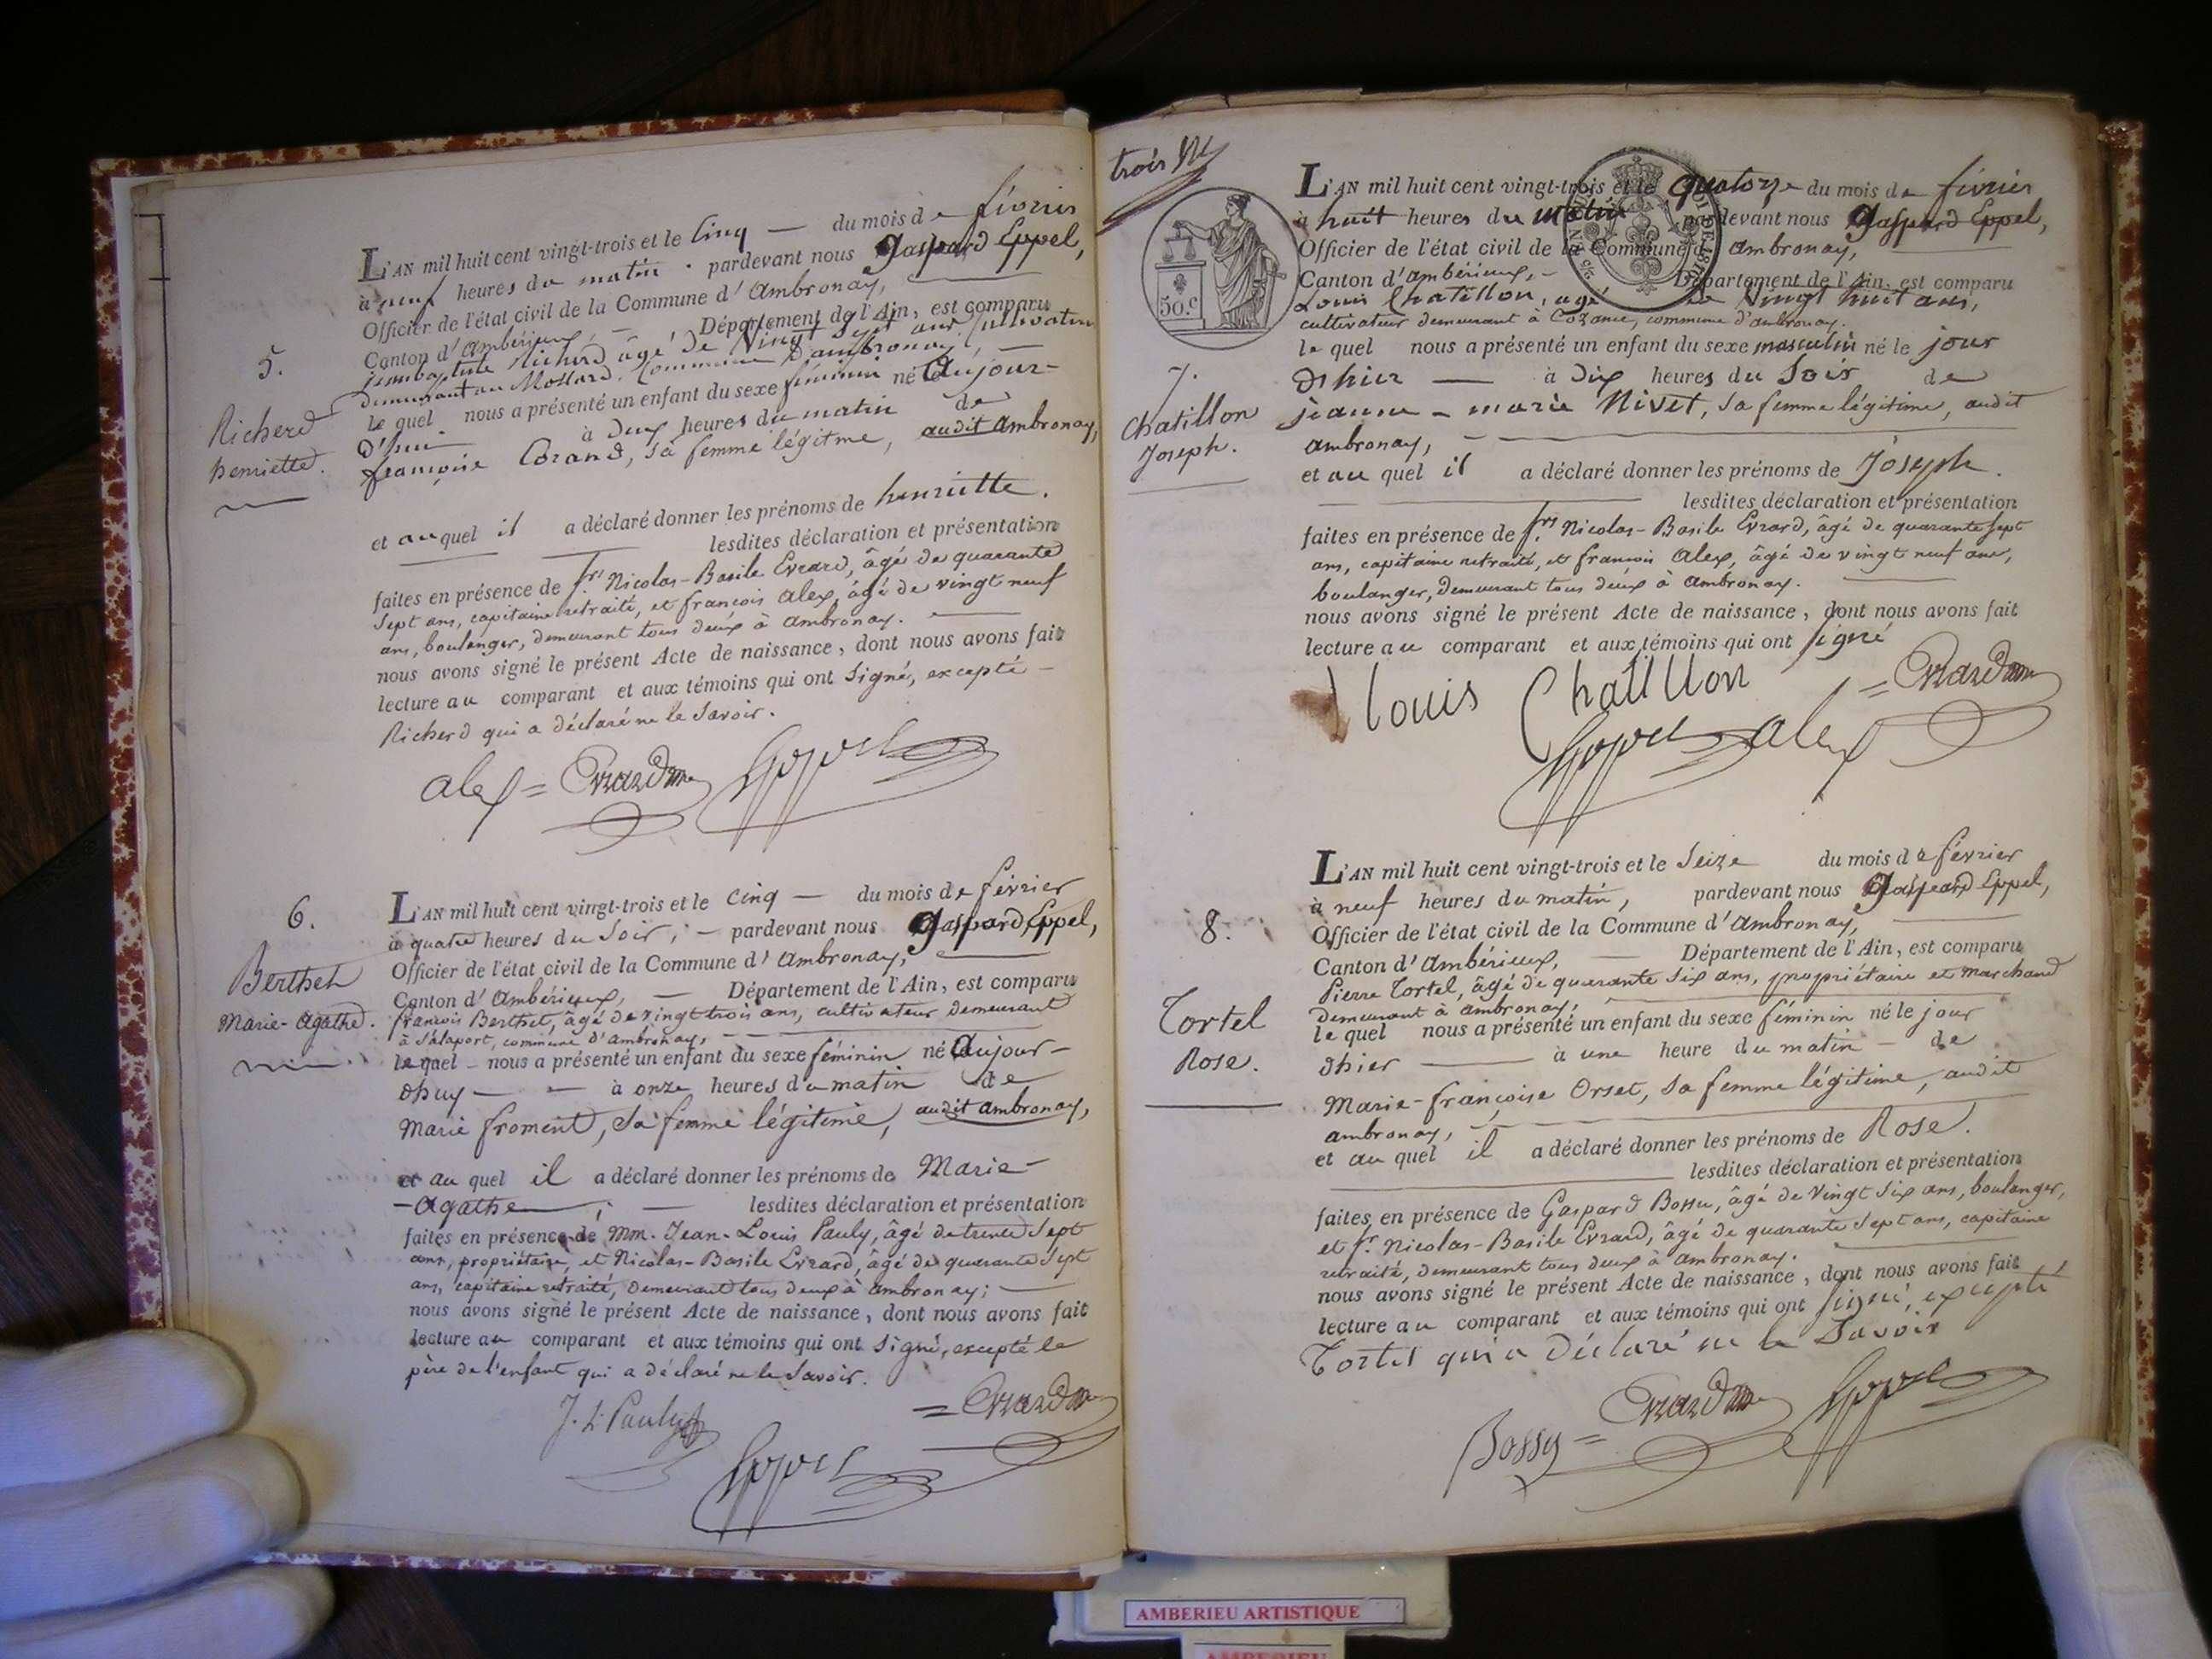 5.
Richerd
henriette.
L'AN mil huit cent vingt-trois et le Cinq — du mois de février
à neuf heures du matin . pardevant nous Gaspard Eppel,
Officier de l'état civil de la Commune d'Ambronay,
Canton d'Ambérieux, — Département de l'Ain, est comparu
jeanbaptiste Richerd âgé de Vingt sept ans, Cultivateur
demeurant au Mollard, Commune d'ambronay, —
le quel nous a présenté un enfant du sexe féminin né Aujour-
d'hui à deux heures du matin de
françoise Corand, sa femme légitme, audit Ambronay,
et au quel il a déclaré donner les prénoms de henriette.
lesdites déclaration et présentation
faites en présence de Srs Nicolas-Basile Evrard, âgé de quarante
sept ans, capitaine retraité, et françois Alex, âgé de vingt neuf
ans, boulanger, demeurant tous deux à Ambronay.
nous avons signé le présent Acte de naissance, dont nous avons fait
lecture au comparant et aux témoins qui ont signé, excepté —
Richerd qui a déclaré ne le savoir.
alex = Evrard Eppel
6.
Berthet
Marie-Agathe.
L'AN mil huit cent vingt-trois et le cinq — du mois de février
à quatre heures du soir, — pardevant nous Gaspard Eppel,
Officier de l'état civil de la Commune d'Ambronay,
Canton d'Ambérieux, — Département de l'Ain, est comparu
françois Berthet, âgé de vingt trois ans, cultivateur demeurant
à Salaport, commune d'ambronay,
le quel – nous a présenté un enfant du sexe féminin né Aujour-
dhuy — — à onze heures du matin de
Marie froment, sa femme légitime, audit Ambronay,
et au quel il a déclaré donner les prénoms de Marie-
-Agathe ; — lesdites déclaration et présentation
faites en présence de Mm. Jean-Louis Pauly, âgé de trente sept
ans, propriétaire, et Nicolas-Basile Evrard, âgé de quarante sept
ans, capitaine retraité, demeurant tous deux à Ambronay; —
nous avons signé le présent Acte de naissance, dont nous avons fait
lecture au comparant et aux témoins qui ont signé, excepté le
père de l'enfant qui a déclaré ne le savoir.
J. L. Pauly = Evrard
Eppel
trois
50.c
7.
Chatillon
Joseph.
L'AN mil huit cent vingt-trois et le quatorze du mois de février
à huit heures du matin pardevant nous Gaspard Eppel,
Officier de l'état civil de la Commune d'Ambronay,
Canton d'Ambérieux, – Département de l'Ain, est comparu
Louis Chatillon, agé de Vingt huit ans,
cultivateur demeurant à Cozance, commune d'ambronay.
le quel nous a présenté un enfant du sexe masculin né le jour
d'hier — à dix heures du soir de
jeanne-marie Nivet, sa femme légitime, audit
ambronay,
et au quel il a déclaré donner les prénoms de Joseph.
lesdites déclaration et présentation
faites en présence de Srs Nicolas-Basile Evrard, âgé de quarante sept
ans, capitaine retraité, et françois Alex, âgé de vingt neuf ans,
boulanger, demeurant tous deux à Ambronay.
nous avons signé le présent Acte de naissance, dont nous avons fait
lecture au comparant et aux témoins qui ont signé
louis Chatillon = Evrard
Eppel alex
8.
Tortel
Rose.
L'AN mil huit cent vingt-trois et le Seize du mois de février
à neuf heures du matin, pardevant nous Gaspard Eppel,
Officier de l'état civil de la Commune d'Ambronay,
Canton d'Ambérieux, — Département de l'Ain, est comparu
Pierre Tortel, âgé de quarante six ans, propriétaire et marchand
demeurant à ambronay,
le quel nous a présenté un enfant du sexe féminin né le jour
dhier — à une heure du matin – de
Marie-françoise Orset, sa femme légitime, audit
ambronay,
et au quel il a déclaré donner les prénoms de Rose.
lesdites déclaration et présentation
faites en présence de Gaspard Bossu, âgé de Vingt six ans, boulanger,
et Sr Nicolas-Basile Evrard, âgé de quarante sept ans, capitaine
retraité, demeurant tous deux à Ambronay.
nous avons signé le présent Acte de naissance, dont nous avons fait
lecture au comparant et aux témoins qui ont signé, excepté
Tortel qui a déclaré ne le Savoir
Bossu = Evrard Eppel
AMBERIEU ARTISTIQUE
AMBERIEU